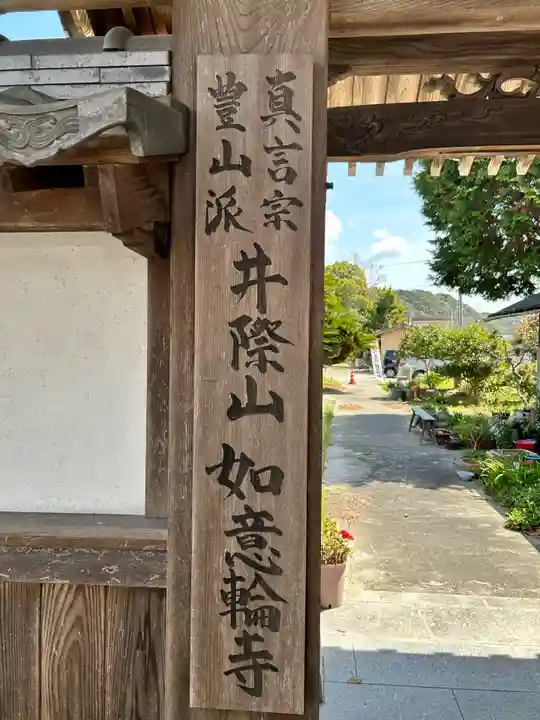 真言宗
豊山派
井際山如意輪寺